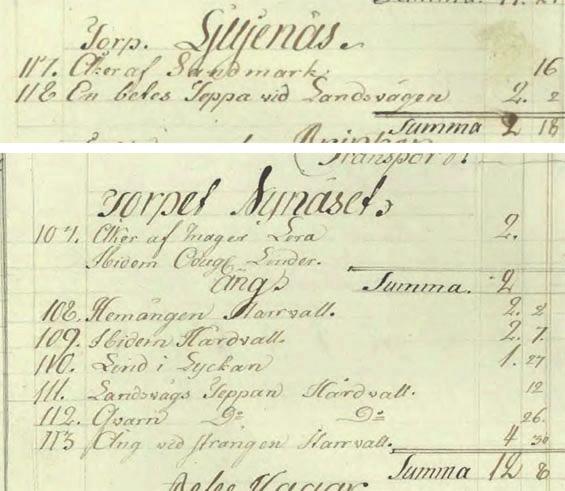 Torp. Liljenäs.
117. Åker af Sandmark. 16
118 En betes Teppa vid Landsvägen 2. 2
Summa 2 18
Transport
Torpet Nynäset.
107. Åker af mager Lera 2.
Ibidem Linder.
Äng. Summa. 2
108. Hemängen Harrvall. 2. 2
109. Ibidem Hårdvall. 2. 7.
110. Lind i Lyckan 1. 27
111. Landsvägs Teppan Hårdvall. 12
112. Qvarn Do Do 26.
113 Äng vid strängen Harrvall. 4 30
Summa 12 8
Hagar